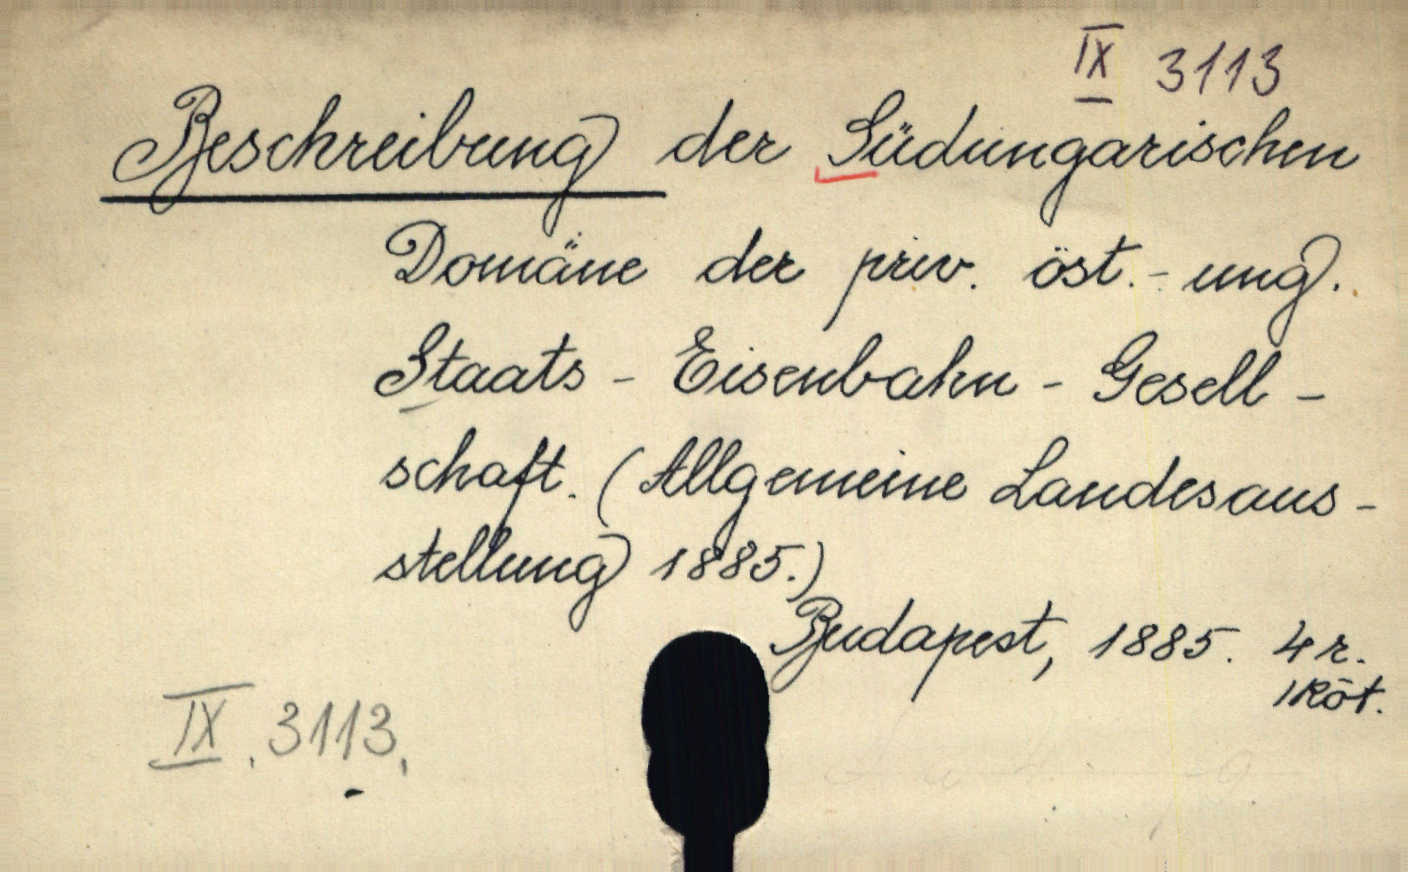 IX 3113
Beschreibung der Südungarischen
Domäne der priv. öst.-ung.
Staats-Eisenbahn-Gesell-
schaft. (Allgemeine Landesaus-
stellung 1885.)
Budapest, 1885. 4 r.
1 Köt.
IX. 3113.